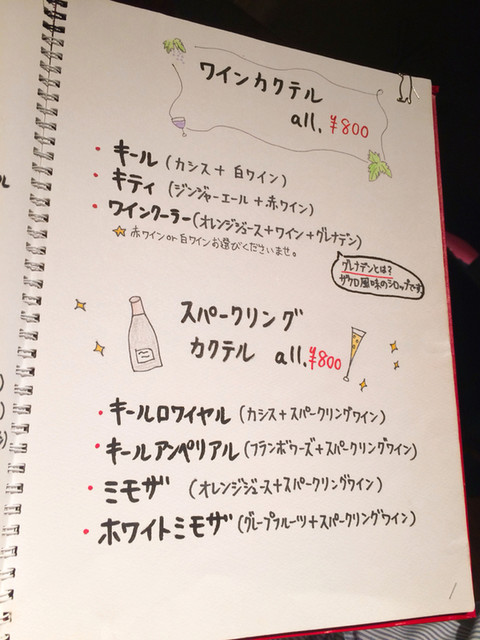 ワインカクテル
all. ¥800
・キール(カシス+白ワイン)
・キティ(ジンジャーエール+赤ワイン)
・ワインクーラー(オレンジジュース+ワイン+グレナデン)
★赤ワインor白ワインお選びくださいませ。
グレナデンとは?
ザクロ風味のシロップです
スパークリング
カクテル all. ¥800
・キールロワイヤル(カシス+スパークリングワイン)
・キールアンペリアル(フランボワーズ+スパークリングワイン)
・ミモザ(オレンジジュース+スパークリングワイン)
・ホワイトミモザ(グレープフルーツ+スパークリングワイン)
1